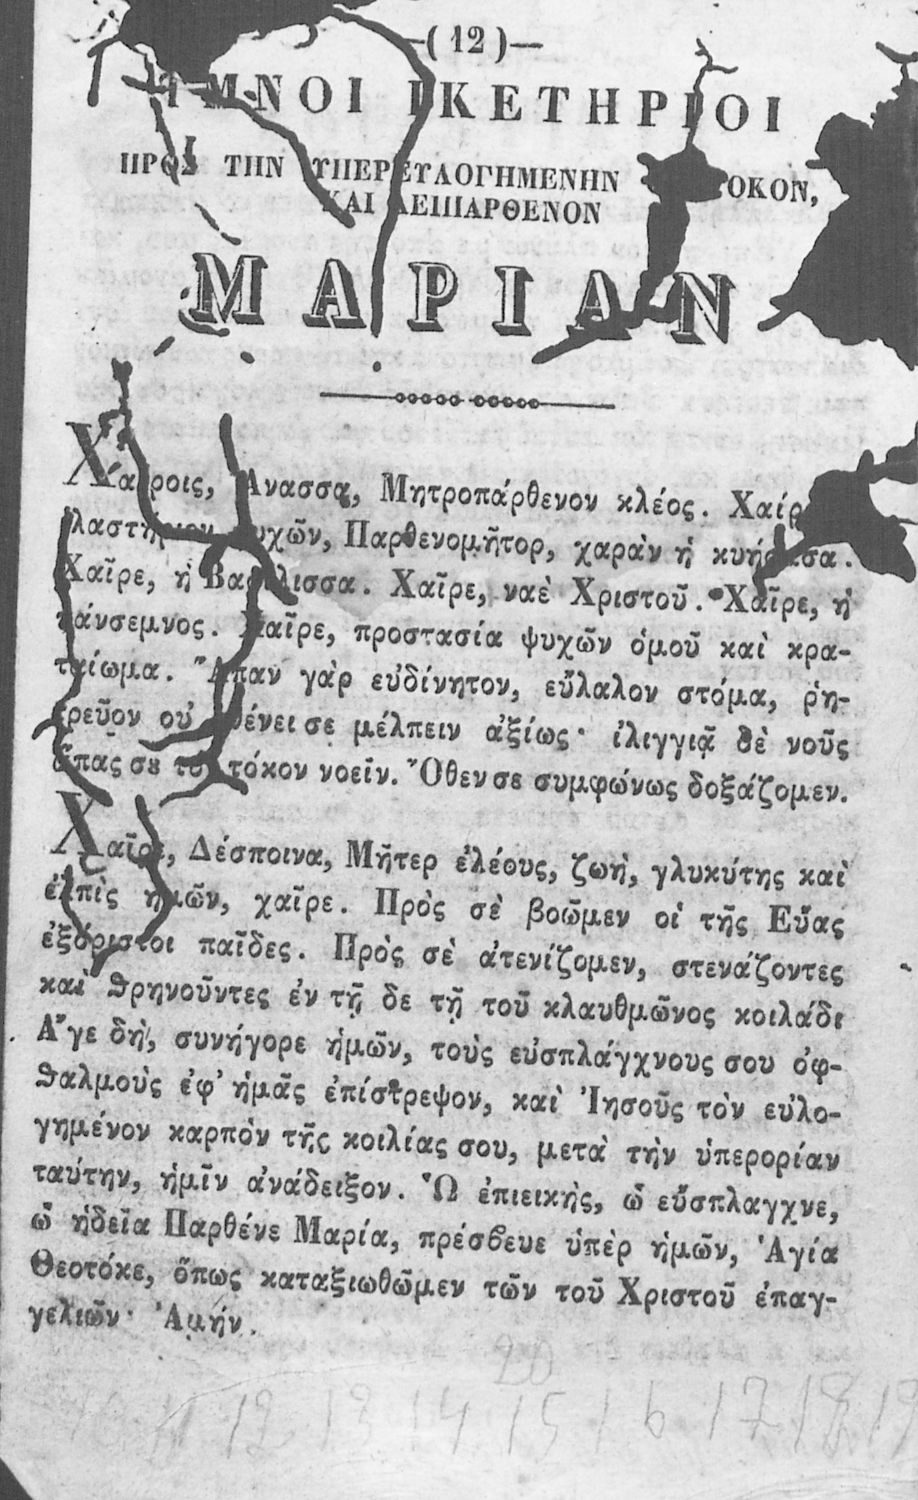 —( 12 )—
ΥΜΝΟΙ ΙΚΕΤΗΡΙΟΙ
ΠΡΟΣ ΤΗΝ ΥΠΕΡΕΥΛΟΓΗΜΕΝΗΝ ΟΚΟΝ,
ΚΑΙ ΑΕΙΠΑΡΘΕΝΟΝ
ΜΑΡΙΑΝ
Χαίροις, Ἄνασσα, Μητροπάρθενον κλέος. Χαίρ
λαστήριον ψυχῶν, Παρθενομῆτορ, χαρὰν ἡ κυήσασα.
Χαῖρε, ἡ Βασίλισσα. Χαῖρε, ναὲ Χριστοῦ. Χαῖρε, ἡ
πάνσεμνος. Χαῖρε, προστασία ψυχῶν ὁμοῦ καὶ κρα-
ταίωμα. Ἅπαν γὰρ εὐδίνητον, εὔλαλον στόμα, ῥη-
τρεῦον οὐ σθένει σε μέλπειν ἀξίως· ἰλιγγιᾷ δὲ νοῦς
ἅπας σου τὸν τόκον νοεῖν. Ὅθεν σε συμφώνως δοξάζομεν.
Χαῖρε, Δέσποινα, Μῆτερ ἐλέους, ζωὴ, γλυκύτης καὶ
ἐλπὶς ἡμῶν, χαῖρε. Πρὸς σὲ βοῶμεν οἱ τῆς Εὔας
ἐξόριστοι παῖδες. Πρὸς σὲ ἀτενίζομεν, στενάζοντες
καὶ θρηνοῦντες ἐν τῇ δε τῇ τοῦ κλαυθμῶνος κοιλάδι
Ἄγε δὴ, συνήγορε ἡμῶν, τοὺς εὐσπλάγχνους σου ὀφ-
θαλμοὺς ἐφ' ἡμᾶς ἐπίστρεψον, καὶ Ἰησοῦς τὸν εὐλο-
γημένον καρπὸν τῆς κοιλίας σου, μετὰ τὴν ὑπερορίαν
ταύτην, ἡμῖν ἀνάδειξον. Ὢ ἐπιεικὴς, ὦ εὔσπλαγχνε,
ὦ ἡδεῖα Παρθένε Μαρία, πρέσβευε ὑπὲρ ἡμῶν, Ἁγία
Θεοτόκε, ὅπως καταξιωθῶμεν τῶν τοῦ Χριστοῦ ἐπαγ-
γελιῶν· Ἀμήν.
20
11 12 13 14 15 16 17 18 19